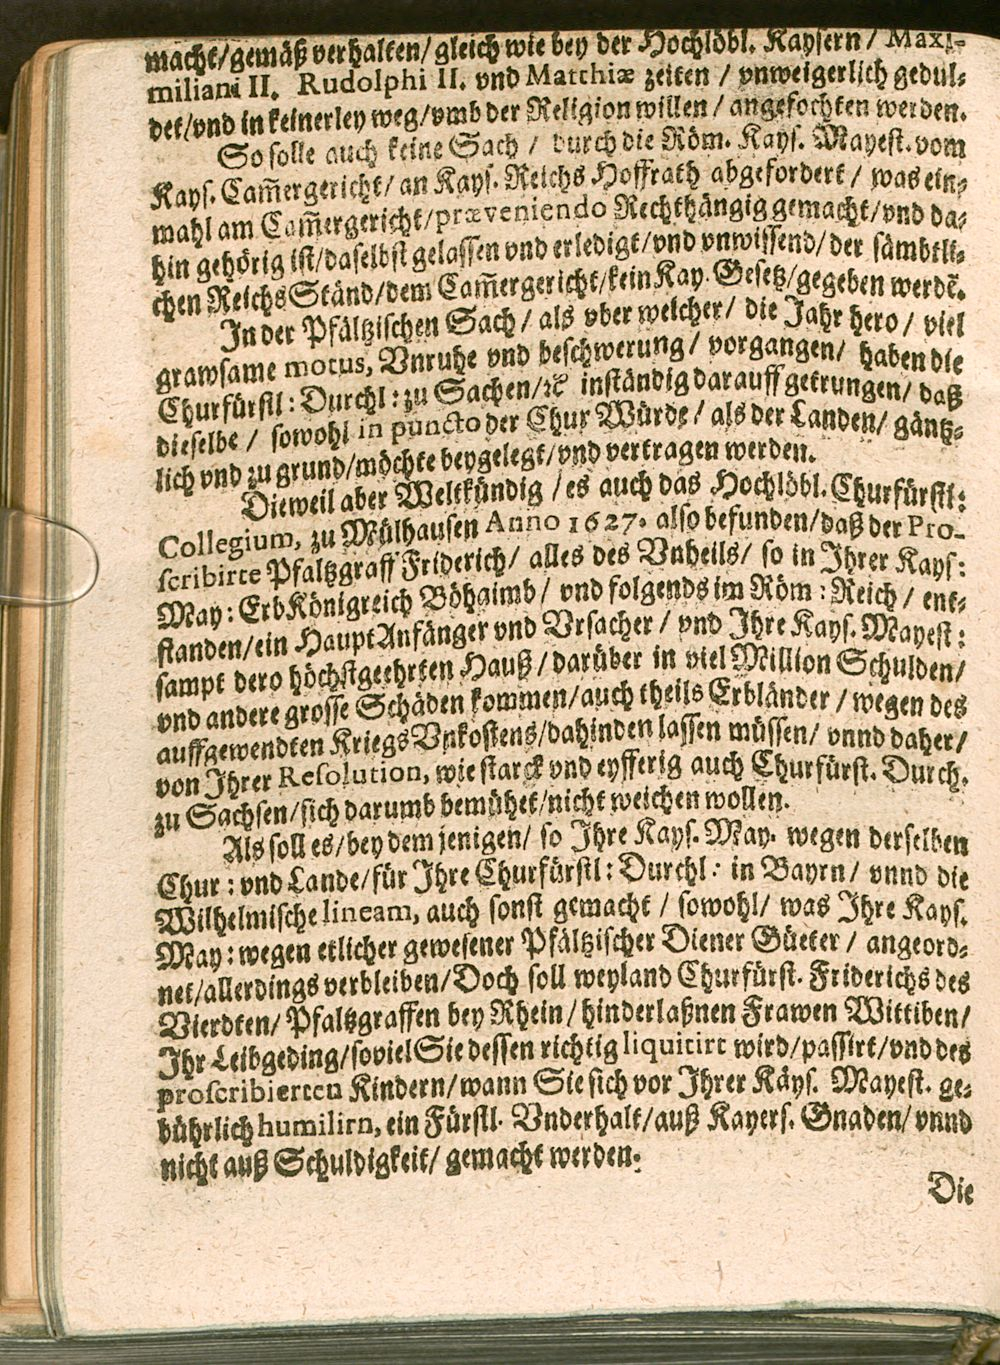 macht/gemäß verhalten/ gleich wie bey der Hochlöbl. Kaysern / Maxi-
miliani II. Rudolphi II. vnd Matthiæ zeiten / vnweigerlich gedul-
det/vnd in keinerley weg/vmb der Religion willen / angefochten werden.
So solle auch keine Sach / durch die Röm. Kays. Mayest. vom
Kays. Cam̃ergericht/ an Kays. Reichs Hoffrath abgefordert / was ein-
mahl am Cam̃ergericht/præveniendo Rechthängig gemacht/vnd da-
hin gehörig ist/daselbst gelassen vnd erledigt/vnd vnwissend/der sämbtli-
chen Reichs Ständ/dem Cam̃ergericht/kein Kay. Gesetz/gegeben werdẽ.
In der Pfältzischen Sach / als vber welcher/ die Jahr hero / viel
grawsame motus, Vnruhe vnd beschwerung / vorgangen/ haben die
Churfürstl: Durchl: zu Sachen/ꝛc̃ inständig darauff getrungen/ daß
dieselbe / sowohl in puncto der Chur Würde / als der Landen/ gäntz-
lich vnd zu grund/möchte beygelegt/vnd vertragen werden.
Dieweil aber Weltkündig / es auch das Hochlöbl. Churfürstl:
Collegium, zu Mülhausen Anno 1627. also befunden/daß der Pro-
scribirte Pfaltzgraff Friderich/ alles des Vnheils/ so in Ihrer Kays:
May: ErbKönigreich Böhaimb/ vnd folgends im Röm: Reich / ent-
standen/ein HauptAnfänger vnd Vrsacher / vnd Ihre Kays. Mayest:
sampt dero höchstgeehrten Hauß / darüber in viel Million Schulden/
vnd andere grosse Schäden kommen/auch theils Erbländer / wegen des
auffgewendten KriegsVnkostens/dahinden lassen müssen/ vnnd daher/
von Ihrer Resolution, wie starck vnd eyfferig auch Churfürst. Durch.
zu Sachsen/sich darumb bemühet/nicht weichen wollen.
Als soll es/bey dem jenigen/ so Ihre Kays. May. wegen derselben
Chur: vnd Lande/für Ihre Churfürstl: Durchl: in Bayrn/ vnnd die
Wilhelmische lineam, auch sonst gemacht / sowohl/ was Ihre Kays.
May: wegen etlicher gewesener Pfältzischer Diener Güeter / angeord-
net/allerdings verbleiben/Doch soll weyland Churfürst. Friderichs des
Vierdten/ Pfaltzgraffen bey Rhein/ hinderlaßnen Frawen Wittiben/
Ihr Leibgeding/soviel Sie dessen richtig liquitirt wird/passirt/vnd des
proscribierten Kindern/wann Sie sich vor Ihrer Käys. Mayest. ge-
bührlich humilirn, ein Fürstl. Vnderhalt/auß Kayers. Gnaden/ vnnd
nicht auß Schuldigkeit/ gemacht werden.
Die